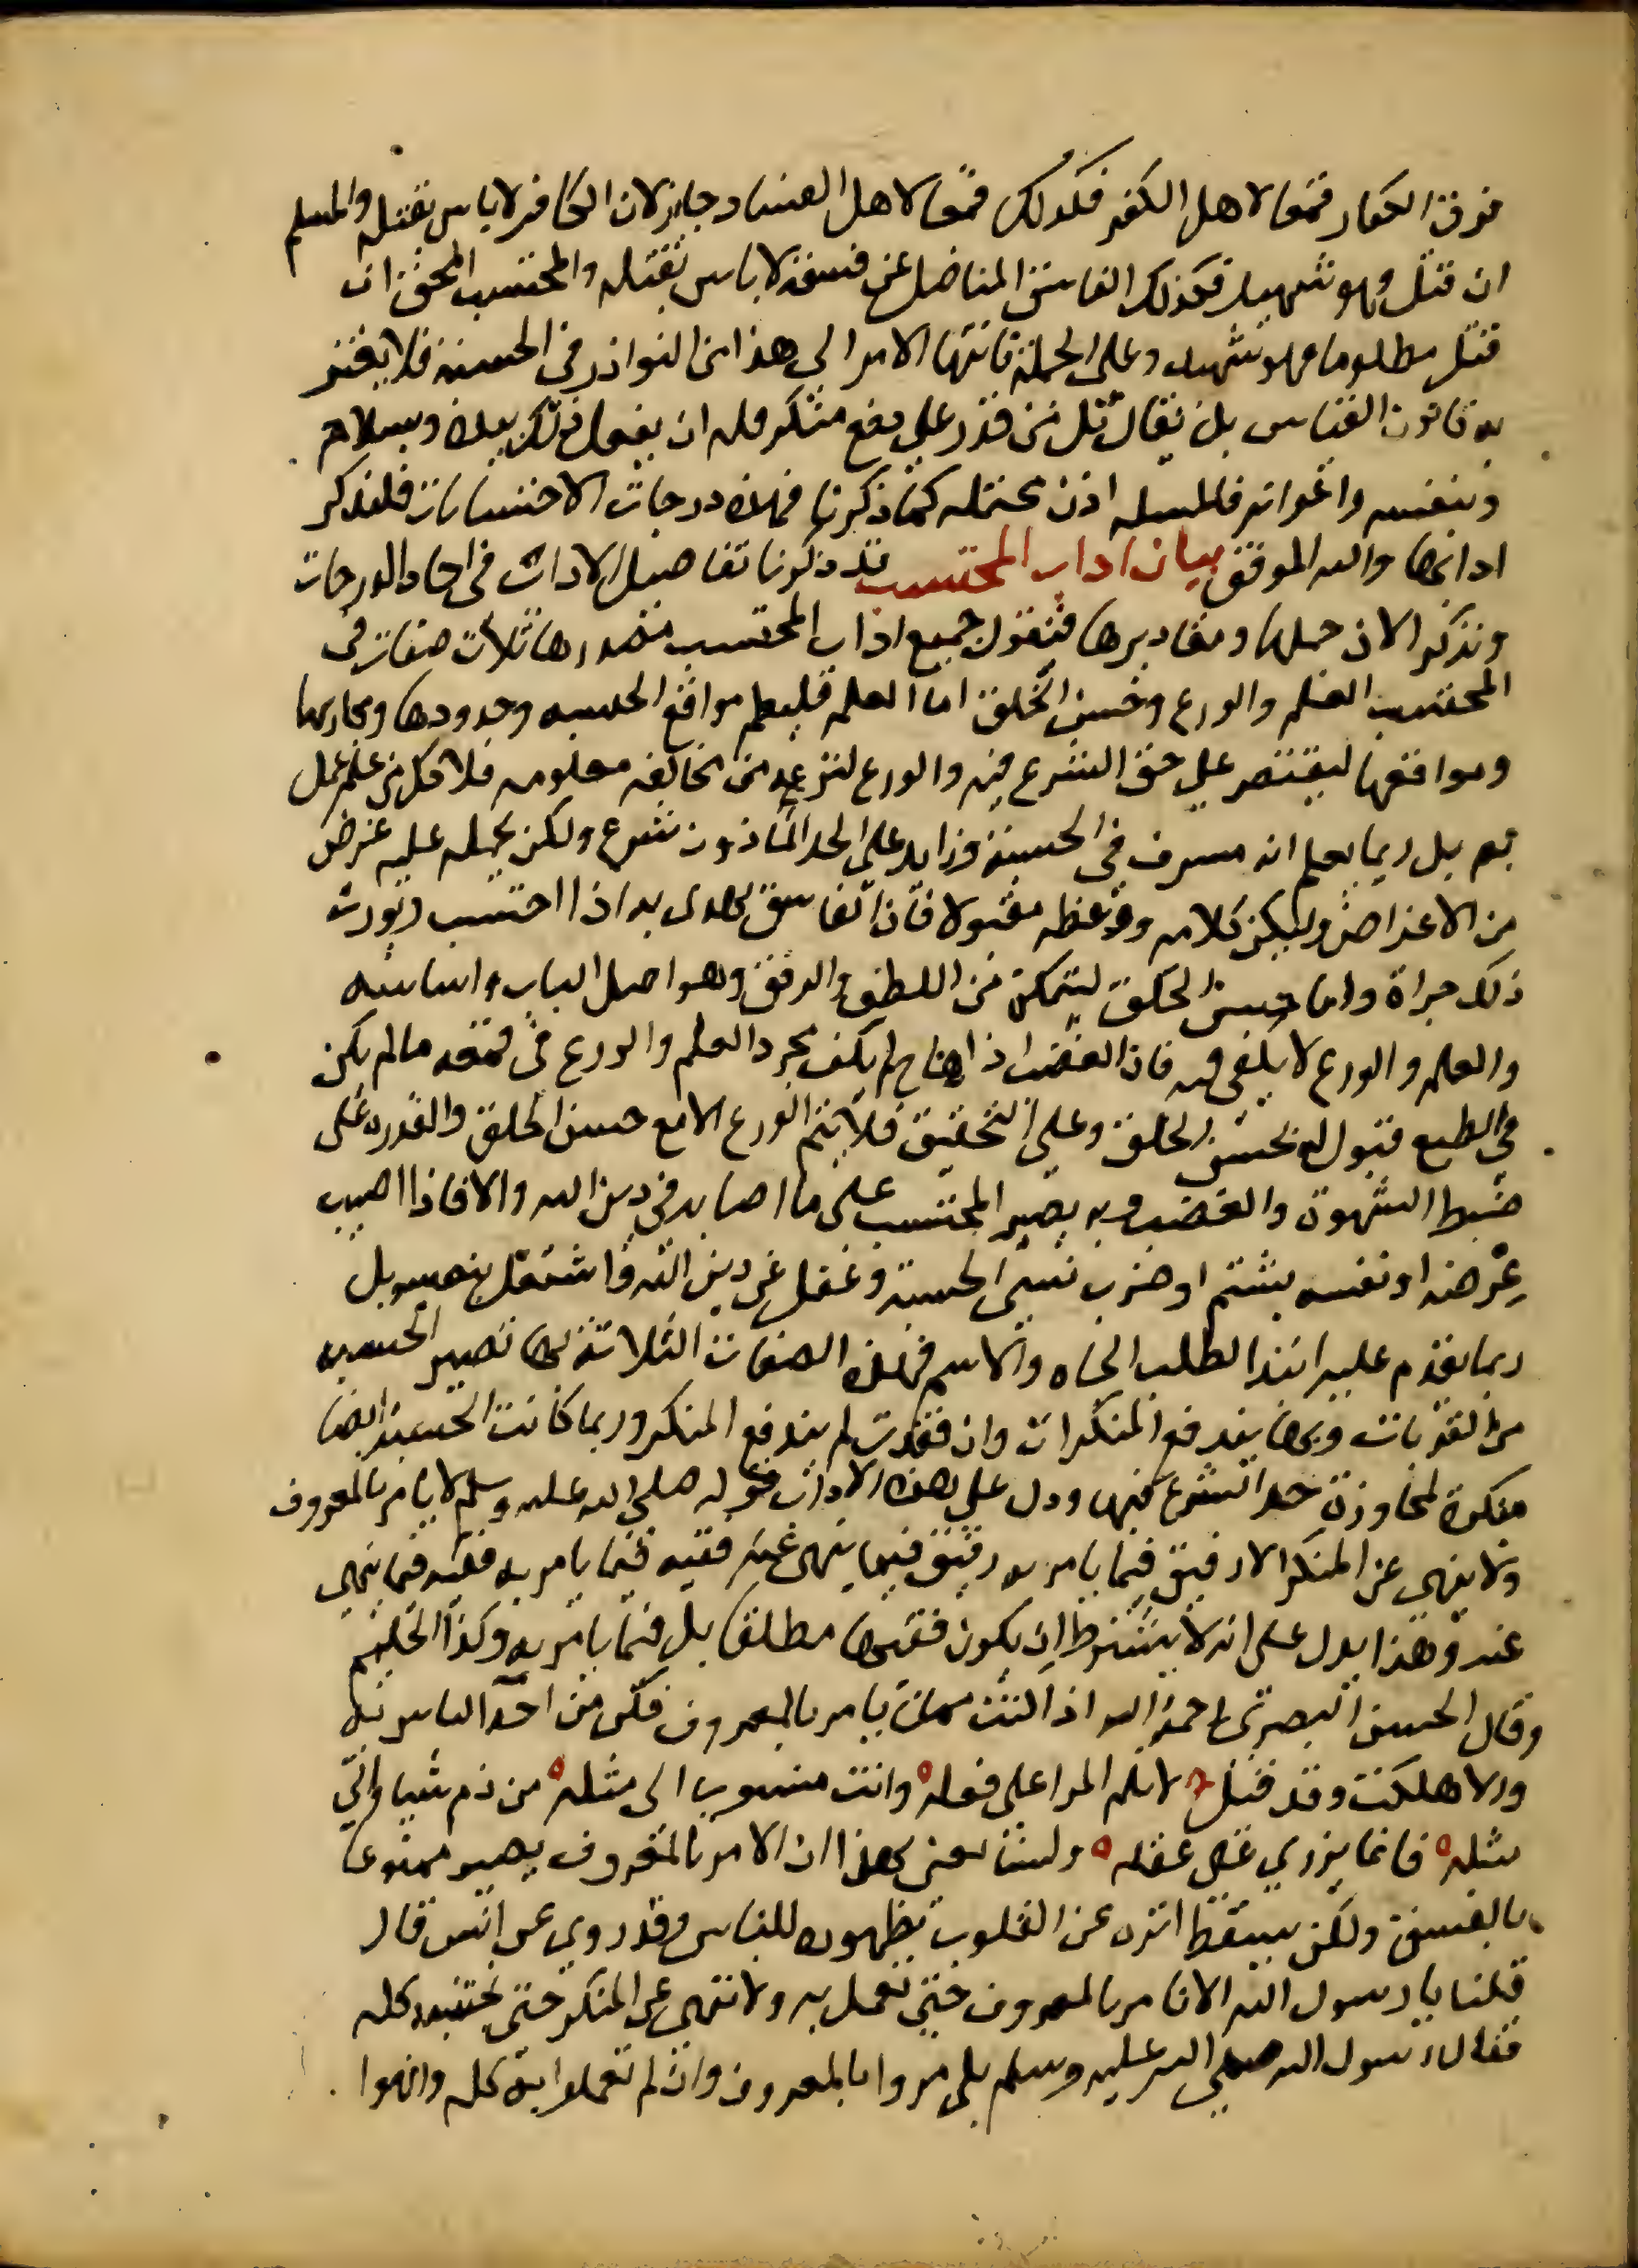 فرق الكفار قمعا لاهل الكفر فكذلك قمعا لاهل الفساد جايز لان الكافر لا باس بقتله والمسلم
ان قتل فهو شهيد فكذلك الفاسق المناضل عن فسقه لا باس بقتله والمحتسب المحق ان
قتل مظلوما فهو شهيد وعلى الجملة فانتها الامر الى هذا من النوادر في الحسبة فلا يغير
به قانون القياس بل يقال كل من قدر على دفع منكر فله ان يفعل ذلك بيده وبسلاحه
وبنفسه واعوانه فالمسله اذن محتمله كما ذكرنا فهذه درجات الاحتسابات فلنذكر
ادابها والله الموفق بيان اداب المحتسب قد ذكرنا تفاصيل الاداب في احاد الدرجات
ونذكر الان جملها ومصادرها فنقول جميع اداب المحتسب مصدرها ثلاث صفات في
المحتسب العلم والورع وحسن الخلق اما العلم فليعلم مواقع الحسبه وحدودها ومجاريها
ومواقعها ليقتصر على حق الشرع فيه والورع ليزعه من مخالفه معلومه فلا كل من علم عمل
به بل ربما يعلم انه مسرف في الحسبة وزايد على الحد الماذون شرع ولكن يحمله عليه غرض
من الاغراض وليكن كلامه ووعظه مقبولا فان الفاسق يهدى به اذا احتسب ويورث
ذلك جراة واما حسن الخلق ليتمكن من اللطف والرفق وهو اصل الباب واساسه
والعلم والورع لا يكفى فيه فان الغضب اذا هاج لم يكف مجرد العلم والورع في قمعه ما لم يكن
في الطبع قبول له بحسن الخلق وعلى التحقيق فلا يتم الورع الا مع حسن الخلق والقدره على
ضبط الشهوة والغضب وبه يصبر المحتسب على ما اصابه في دين الله والا فاذا اصيب
عرضه او نفسه بشتم او ضرب نسي الحسبة وغفل عن دين الله فاشتغل بنفسه بل
ربما يقدم عليه ابتدا لطلب الجاه والاسم فهذه الصفات الثلاثة بها تصير الحسبه
من القربات وبها يندفع المنكرات وان فقدت لم يندفع المنكر وربما كانت الحسبة ايضا
منكرة لمجاوزة حد الشرع فيها ودل على هذه الاداب قوله صلى الله عليه وسلم لا يامر بالمعروف
ولا ينهى عن المنكر الا رفيق فيما يامر به رفيق فيما ينهى عنه فقيه فيما يامر به فقيه فيما ينهى
عنه وهذا يدل على انه لا يشترط ان يكون فقيها مطلقا بل فيما يامر به وكذا الحليم
وقال الحسن البصرى رحمه الله اذا كنت ممن يامر بالمعروف فكن من احد الناس به
والا هلكت وقد قيل ٥ لا تلم المرا على فعله ٥ وانت منسوب الى مثله ٥ من ذم شيا واتى
مثله ٥ فانما يزري على عقله ٥ ولسنا نعنى بهذا ان الامر بالمعروف يصير ممنوعا
بالفسق ولكن يسقط اثره عن القلوب بظهوره للناس وقد روي عن انس قال
قلنا يا رسول الله الا نامر بالمعروف حتى نعمل به ولا ننهى عن المنكر حتى نجتنبه كله
فقال رسول الله صلى الله عليه وسلم بلى مروا بالمعروف وان لم تعملوا به كله وانهوا